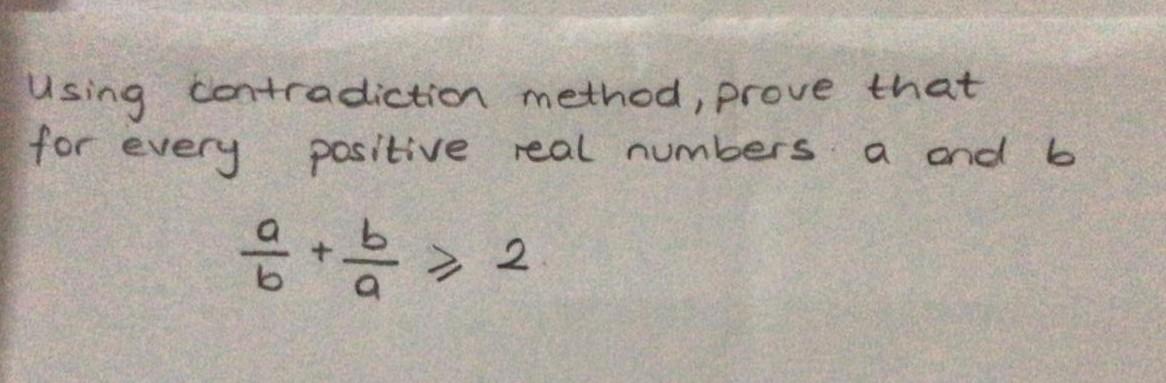 Using contradiction method, prove that
for every positive real numbers a and b
a/b + b/a ⩾ 2